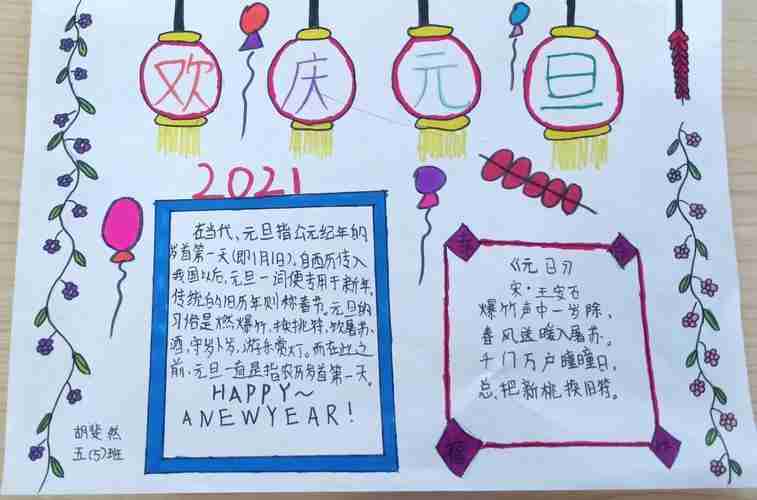 欢庆元旦
2021
在当代，元旦指公元纪年的
岁首第一天（即1月1日）。自西历传入
我国以后，元旦一词便专用于新年，
传统的旧历年则称春节。元旦的
习俗是燃爆竹，换桃符，饮屠苏
酒，守岁卜岁，游乐赏灯。而在此之
前，元旦一直是指农历岁首第一天。
HAPPY~
A NEW YEAR!
《元日》
宋·王安石
爆竹声中一岁除，
春风送暖入屠苏。
千门万户曈曈日，
总把新桃换旧符。
福
胡斐然
五（5）班